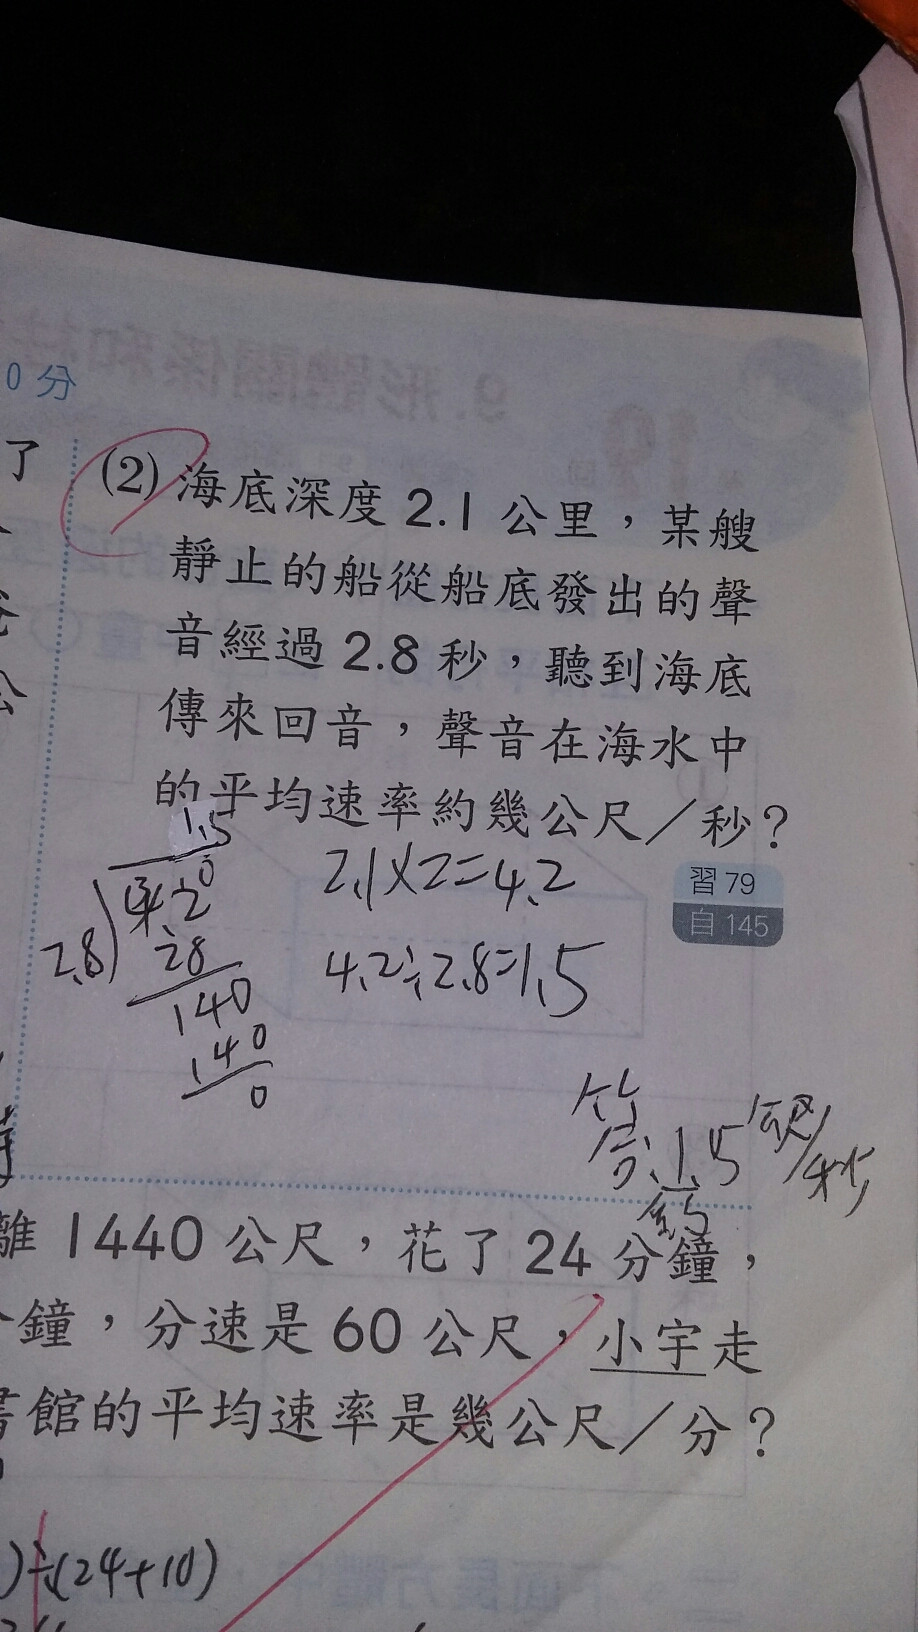 0分
了
(2) 海底深度2.1公里，某艘
靜止的船從船底發出的聲
音經過2.8秒，聽到海底
傳來回音，聲音在海水中
的平均速率約幾公尺／秒？
習79
自145
1.5
2.8)4.20
28
140
140
0
2.1×2=4.2
4.2÷2.8=1.5
答:1.5公尺/秒
離1440公尺，花了24分鐘，
鐘，分速是60公尺，小宇走
書館的平均速率是幾公尺／分？
)÷(24+10)